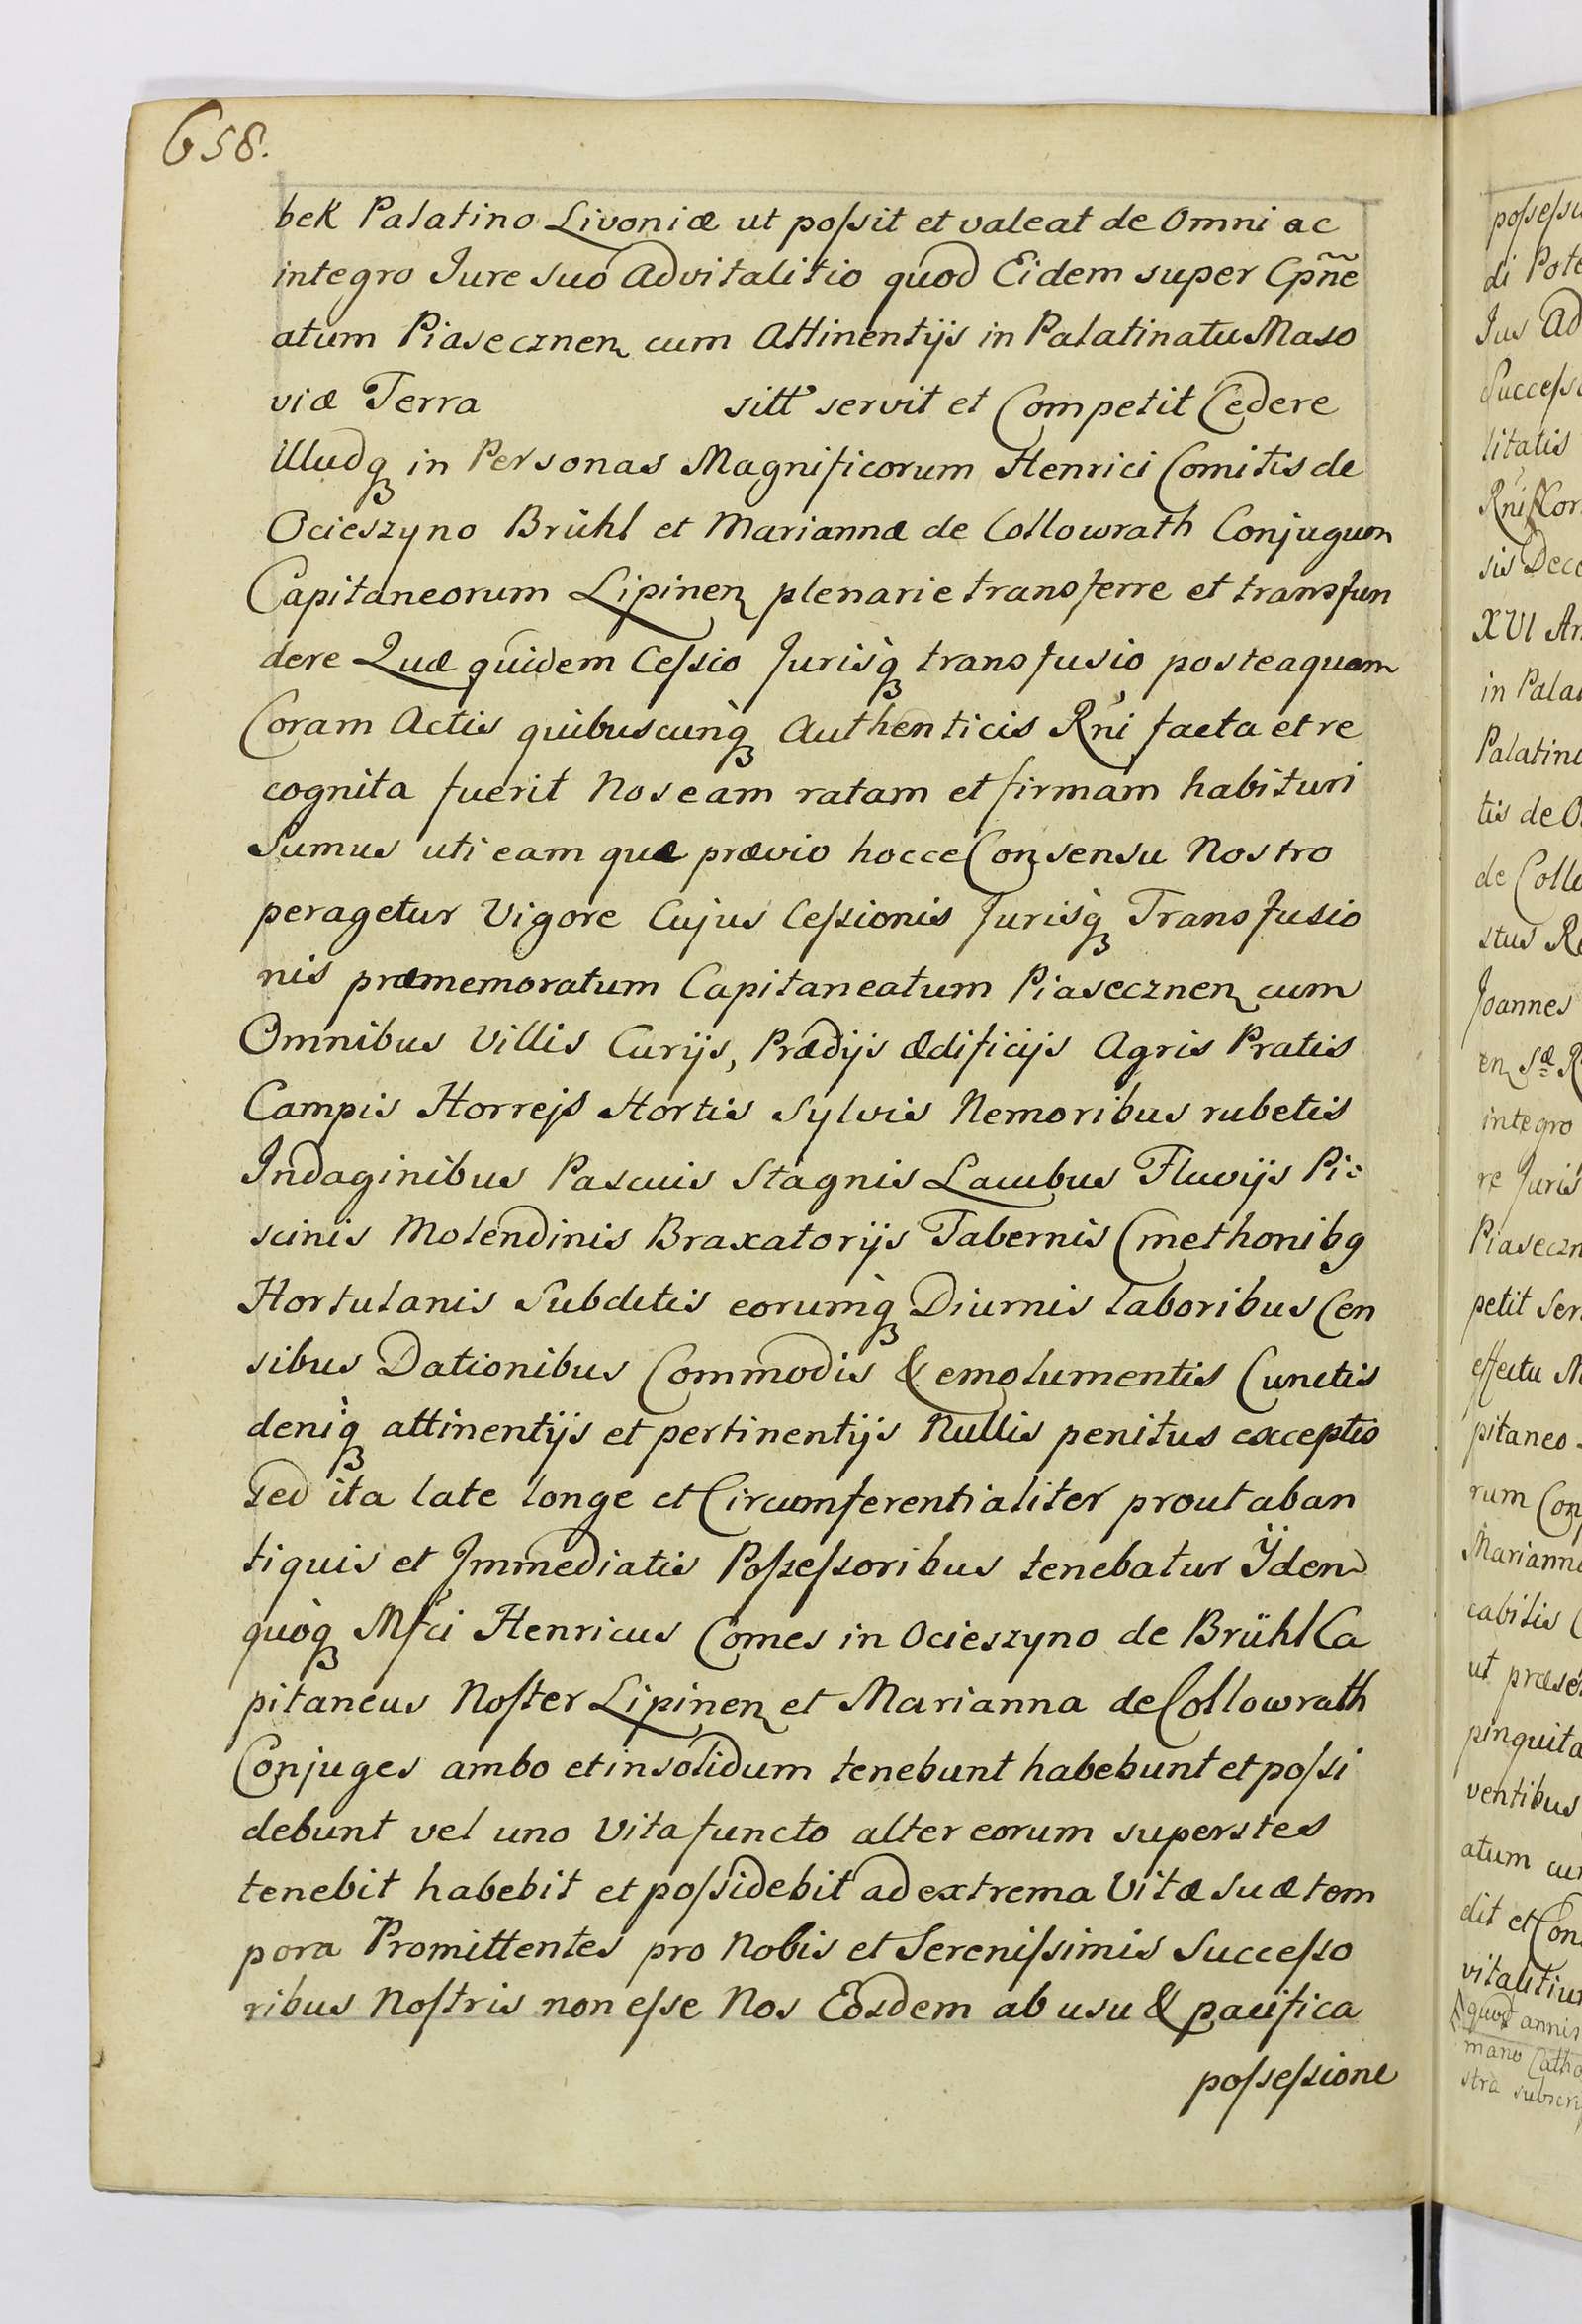 658.
bek Palatino Livoniæ ut poſsit et valeat de Omni ac
integro Jure suo Advitalitio quod Eidem super Cpñe
atum Piasecznen cum Attinentijs in Palatinatu Maso
viæ Terra sitt servit et Competit Cedere
Illudq in Personas Magnificorum Henrici Comitis de
Ocieszyno Brühl et Mariannæ de Collowrath Conjugum
Capitaneorum Lipinen plenarie transferre et transfun
dere Quæ quidem Ceſsio Jurisq transfusio posteaquam
Coram Actis quibuscunq Authenticis Rni facta et re
cognita fuerit Nos eam ratam et firmam habituri
Sumus uti eam quæ prævio hocce Consensu Nostro
peragetur Vigore Cujus Ceſsionis Jurisq Transfusio
nis præmemoratum Capitaneatum Piasecznen cum
Omnibus Villis Curijs, Prædijs ædificijs Agris Pratis
Campis Horrejs Hortis Sylvis Nemoribus rubetis
Indaginibus Pascuis Stagnis Lacubus Fluvijs Pi=
scinis Molendinis Braxatorijs Tabernis Cmethonibq
Hortulanis Subditis eorumq Diurnis laboribus Cen
sibus Dationibus Commodis & emolumentis Cunctis
deniq attinentijs et pertinentijs Nullis penitus exceptis
sed ita late longe et Circumferentialiter prout ab an
tiquis et Immediatis Poſseſsoribus tenebatur Ÿdem
quoq Mfci Henricus Comes in Ocieszyno de Brühl Ca
pitaneus Noſter Lipinen et Marianna de Collowrath
Conjuges ambo et in solidum tenebunt habebunt et poſsi
debunt vel uno Vita functo alter eorum superstes
tenebit habebit et poſsidebit ad extrema Vitæ Suæ tem
pora Promittentes pro Nobis et Sereniſsimis Succeſso
ribus Noſtris non eſse Nos Eosdem ab usu & pacifica
poſseſsione
di Pote
Jus Ad
litatis
XVI
in Pala
Palatin
tis de O
de Coll
Joannes
integro
re Juris
Piaseczn
petit Ser
pitaneo
rum Con
Mariann
cabilis
ventibus
atum cu
dit et Con
vitalitiu
quod annis
mano Catho
stra subscri